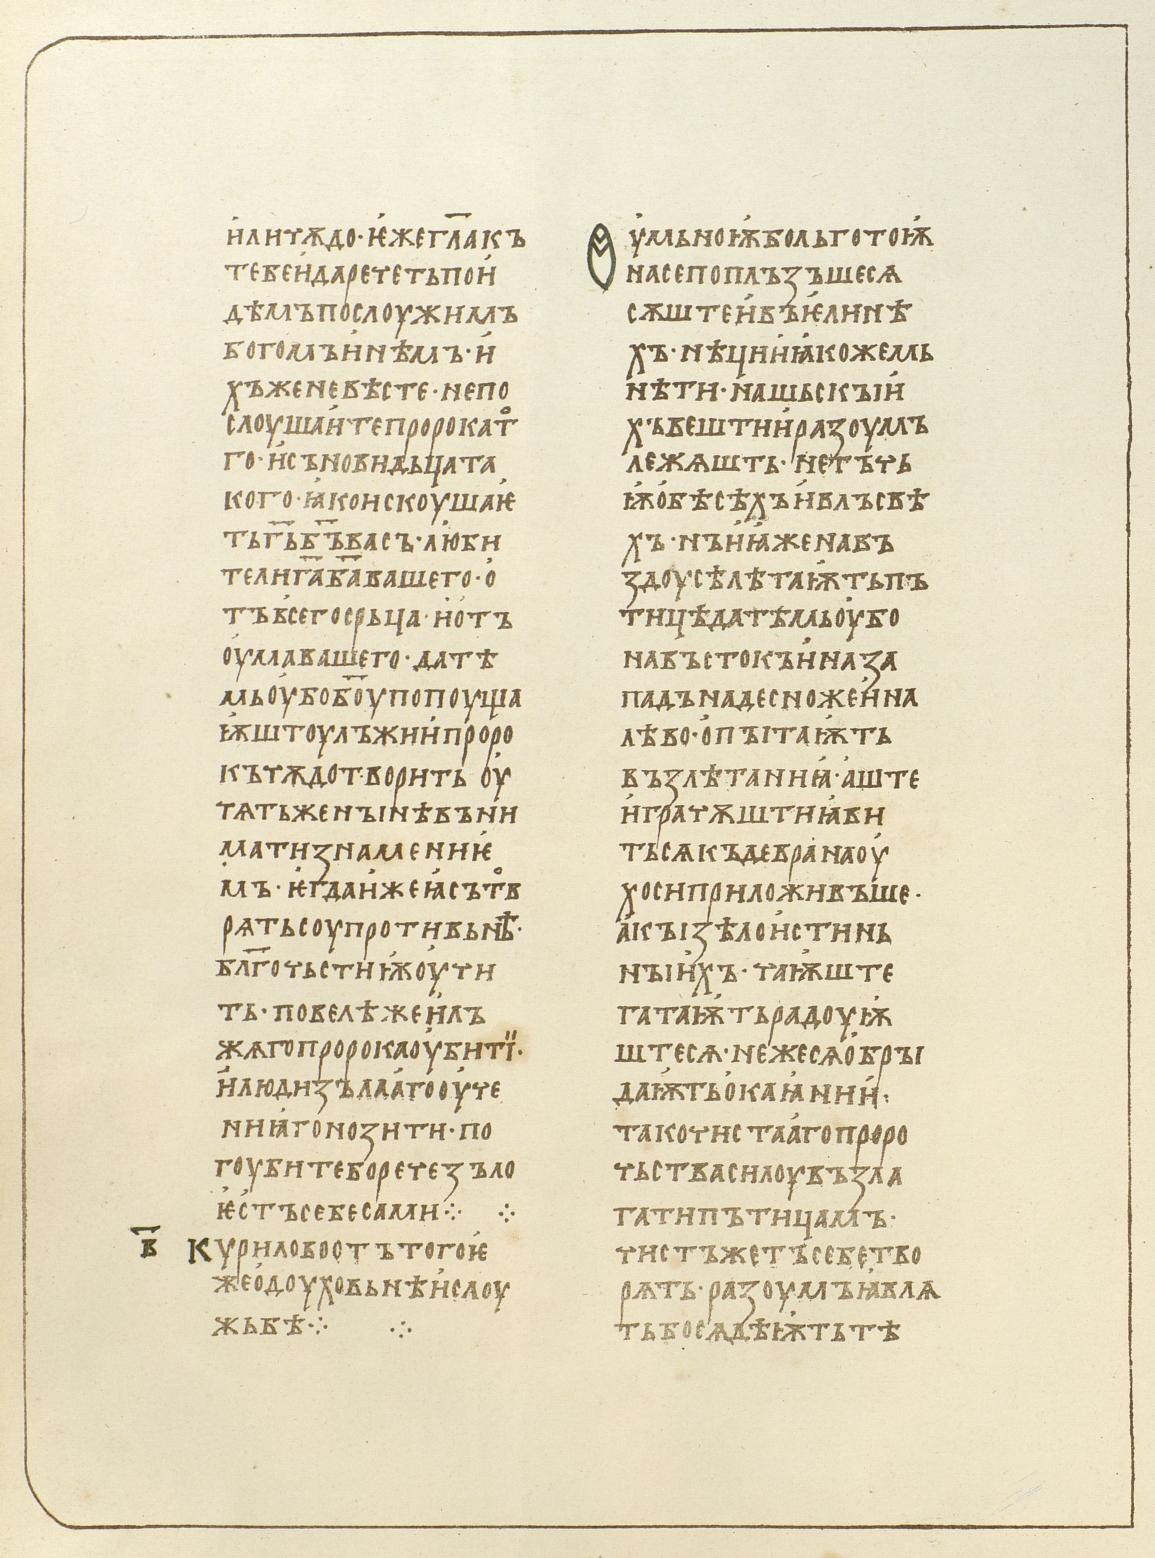 и҆ли чѫдо· ѥ҆же гл҃а къ
тебе и҆ да речететь пои҆
дѣмъ послоужимъ
богомъ и҆нѣмъ· и҆
хъже не вѣсте· не по
слоушаи҆те пророка то
го· и҆ сънови́дьца та
кого· ꙗ҆ко искоу́шаѥ҆
ть г҃ь б҃ъ васъ· лю́би
те ли г҃а б҃а вашего· о҆
тъ всего срьца· и҆ отъ
оу҆ма вашего· да тѣ
мь оу҆бо б҃оу попоуща
ѭ҆штоу лъжии҆ проро
къ чѫдо творить оу҆
чѧть же ны не въни
мати знамениѥ҆
мъ· ѥ҆гда и҆же ꙗ҆ съто в
рѧть соупротивь нѣ·
бл҃гочьстиѭ҆ оу҆чи
ть· повелѣ же и҆лъ
жѧго пророка оу҆бити·
и҆ люди зълаа҆го оу҆че
ниꙗ҆ гонозити· по
гоубите бо рече зъло
ѥ҆стъ себе сами ⁘ ⁘
в҃ Курило бо отъ того ѥ҆
же о҆ доуховьнѣи҆ слоу
жьбѣ ⁘ ⁘
Оу҆мьноѭ҆ больготоѭ҆
на се попълъзъшесѧ
сѫште и҆ въ ѥ҆линѣ
хъ· нѣции҆ ꙗ҆коже мь
нѣти· и҆ашьскꙑи҆
хъ вештии҆ разоумъ
лежѧшть· не тъчь
ѭ҆ о҆ бѣсѣхъ и҆ влъсвѣ
хъ· нъ и҆ ꙗ҆же на въ
здоусѣ лѣтаѭ҆ть пъ
тицѣ да тѣмь оу҆бо
на въстокъ и҆ на за
падъ на десно же и҆ на
лѣво· о҆пꙑтаѭ҆ть
възлѣтаниꙗ҆· аште
и҆грачѫштиꙗ҆ ви
тьсѧ къде вра́на оу҆
хо си приложивъше·
а҆кꙑ зѣло и҆стинь
нꙑи҆хъ· чаѭ҆ште
гатаѭ҆ть радоуѭ҆
штесѧ· неже сѧ о҆брꙑ
даѭ҆ть о҆каꙗ҆нии҆:
тако чистаа҆го проро
чьства силоу възла
гати пътицамъ·
чисть же тъ себе тво
рѧть· разоумъ ꙗ҆влѧ
ть бо сѧ дѣѭ҆ть тѣ